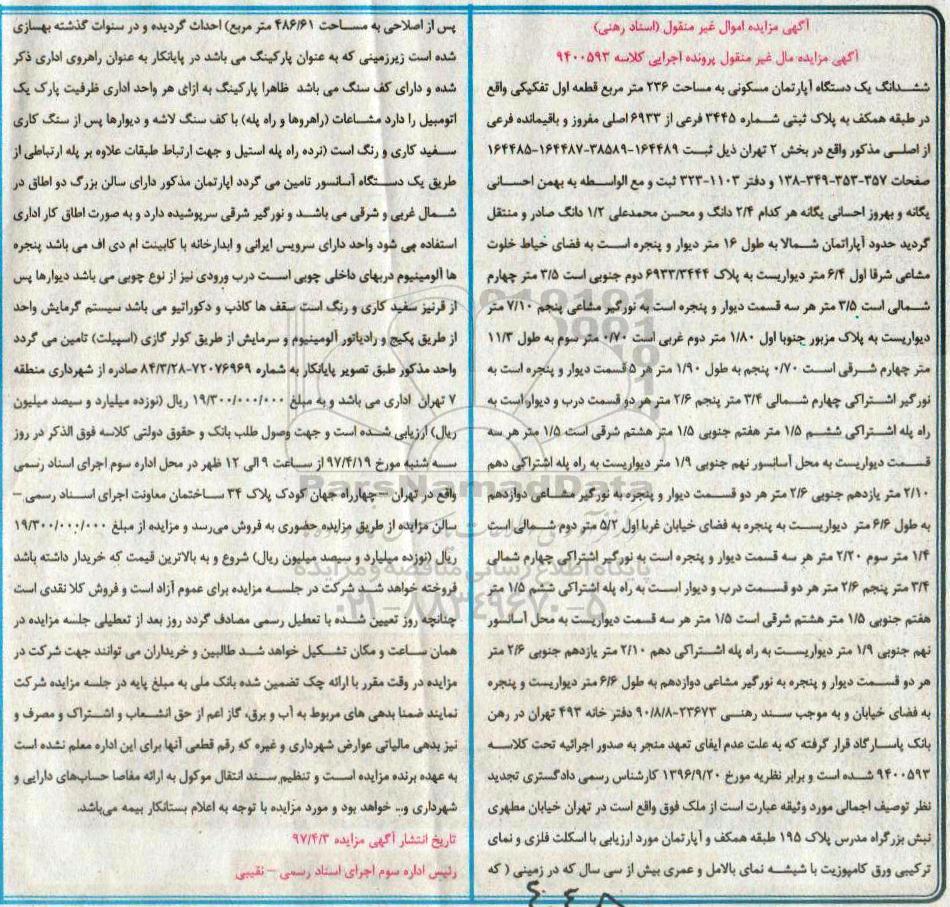 آگهی مزایده اموال غیر منقول (اسناد رهنی)
آگهی مزایده مال غیر منقول پرونده اجرایی کلاسه ۹۴۰۰۵۹۳
ششدانگ یک دستگاه آپارتمان مسکونی به مساحت ۲۳۶ متر مربع قطعه اول تفکیکی واقع
در طبقه همکف به پلاک ثبتی شماره ۳۴۴۵ فرعی از ۶۹۳۳ اصلی مفروز و باقیمانده فرعی
از اصلی مذکور واقع در بخش ۲ تهران ذیل ثبت ۱۶۴۴۸۹-۳۸۵۸۹-۱۶۴۴۸۷-۱۶۴۴۸۵
صفحات ۳۵۷-۳۵۳-۳۴۹-۱۳۸ و دفتر ۱۱۰۳-۳۲۳ ثبت و مع الواسطه به بهمن احسانی
یگانه و بهروز احسانی یگانه هر کدام ۲/۴ دانگ و محسن محمدعلی ۱/۲ دانگ صادر و منتقل
گردید حدود آپاراتمان شمالا به طول ۱۶ متر دیوار و پنجره است به فضای حیاط خلوت
مشاعی شرقا اول ۶/۴ متر دیواریست به پلاک ۶۹۳۳/۳۴۴۴ دوم جنوبی است ۳/۵ متر چهارم
شمالی است ۳/۵ متر هر سه قسمت دیوار و پنجره است به نورگیر مشاعی پنجم ۷/۱۰ متر
دیواریست به پلاک مزبور جنوبا اول ۱/۸۰ متر دوم غربی است ۰/۷۰ متر سوم به طول ۱۱/۳
متر چهارم شرقی است ۰/۷۰ پنجم به طول ۱/۹۰ متر هر ۵ قسمت دیوار و پنجره است به
نورگیر اشتراکی چهارم شمالی ۳/۴ متر پنجم ۲/۶ متر هر دو قسمت درب و دیوار است به
راه پله اشتراکی ششم ۱/۵ متر هفتم جنوبی ۱/۵ متر هشتم شرقی است ۱/۵ متر هر سه
قسمت دیواریست به محل آسانسور نهم جنوبی ۱/۹ متر دیواریست به راه پله اشتراکی دهم
۲/۱۰ متر یازدهم جنوبی ۲/۶ متر هر دو قسمت دیوار و پنجره به نورگیر مشاعی دوازدهم
به طول ۶/۶ متر دیواریست به پنجره به فضای خیابان غربا اول ۵/۲ متر دوم شمالی است
۱/۴ متر سوم ۲/۲۰ متر هر سه قسمت دیوار و پنجره است به نورگیر اشتراکی چهارم شمالی
۳/۴ متر پنجم ۲/۶ متر هر دو قسمت درب و دیوار است به راه پله اشتراکی ششم ۱/۵ متر
هفتم جنوبی ۱/۵ متر هشتم شرقی است ۱/۵ متر هر سه قسمت دیواریست به محل آسانسور
نهم جنوبی ۱/۹ متر دیواریست به راه پله اشتراکی دهم ۲/۱۰ متر یازدهم جنوبی ۲/۶ متر
هر دو قسمت دیوار و پنجره به نورگیر مشاعی دوازدهم به طول ۶/۶ متر دیواریست و پنجره
به فضای خیابان و به موجب سند رهنی ۲۳۶۷۳-۹۰/۸/۸ دفتر خانه ۴۹۳ تهران در رهن
بانک پاسارگاد قرار گرفته که به علت عدم ایفای تعهد منجر به صدور اجرائیه تحت کلاسه
۹۴۰۰۵۹۳ شده است و برابر نظریه مورخ ۱۳۹۶/۹/۲۰ کارشناس رسمی دادگستری تجدید
نظر توصیف اجمالی مورد وثیقه عبارت است از ملک فوق واقع است در تهران خیابان مطهری
نبش بزرگراه مدرس پلاک ۱۹۵ طبقه همکف و آپارتمان مورد ارزیابی با اسکلت فلزی و نمای
ترکیبی ورق کامپوزیت با شیشه نمای بالامل و عمری بیش از سی سال که در زمینی ( که
پس از اصلاحی به مساحت ۴۸۶/۶۱ متر مربع) احداث گردیده و در سنوات گذشته بهسازی
شده است زیرزمینی که به عنوان پارکینگ می باشد در پایانکار به عنوان راهروی اداری ذکر
شده و دارای کف سنگ می باشد ظاهرا پارکینگ به ازای هر واحد اداری ظرفیت پارک یک
اتومبیل را دارد مشاعات (راهروها و راه پله) با کف سنگ لاشه و دیوارها پس از سنگ کاری
سفید کاری و رنگ است (نرده راه پله استیل و جهت ارتباط طبقات علاوه بر پله ارتباطی از
طریق یک دستگاه آسانسور تامین می گردد اپارتمان مذکور دارای سالن بزرگ دو اطاق در
شمال غربی و شرقی می باشد و نورگیر شرقی سرپوشیده دارد و به صورت اطاق کار اداری
استفاده می شود واحد دارای سرویس ایرانی و ابدارخانه با کابینت ام دی اف می باشد پنجره
ها آلومینیوم دربهای داخلی چوبی است درب ورودی نیز از نوع چوبی می باشد دیوارها پس
از قرنیز سفید کاری و رنگ است سقف ها کاذب و دکوراتیو می باشد سیستم گرمایش واحد
از طریق پکیج و رادیاتور آلومینیوم و سرمایش از طریق کولر گازی (اسپیلت) تامین می گردد
واحد مذکور طبق تصویر پایانکار به شماره ۷۲۰۷۶۹۶۹-۸۴/۳/۲۸ صادره از شهرداری منطقه
۷ تهران اداری می باشد و به مبلغ ۱۹/۳۰۰/۰۰۰/۰۰۰ ریال (نوزده میلیارد و سیصد میلیون
ریال) ارزیابی شده است و جهت وصول طلب بانک و حقوق دولتی کلاسه فوق الذکر در روز
سه شنبه مورخ ۹۷/۴/۱۹ از ساعت ۹ الی ۱۲ ظهر در محل اداره سوم اجرای اسناد رسمی
واقع در تهران – چهارراه جهان کودک پلاک ۳۴ ساختمان معاونت اجرای اسناد رسمی –
سالن مزایده از طریق مزایده حضوری به فروش می‌رسد و مزایده از مبلغ ۱۹/۳۰۰/۰۰۰/۰۰۰
ریال (نوزده میلیارد و سیصد میلیون ریال) شروع و به بالاترین قیمت که خریدار داشته باشد
فروخته خواهد شد شرکت در جلسه مزایده برای عموم آزاد است و فروش کلا نقدی است
چنانچه روز تعیین شده با تعطیل رسمی مصادف گردد روز بعد از تعطیلی جلسه مزایده در
همان ساعت و مکان تشکیل خواهد شد طالبین و خریداران می توانند جهت شرکت در
مزایده در وقت مقرر با ارائه چک تضمین شده بانک ملی به مبلغ پایه در جلسه مزایده شرکت
نمایند ضمنا بدهی های مربوط به آب و برق، گاز اعم از حق انشعاب و اشتراک و مصرف و
نیز بدهی مالیاتی عوارض شهرداری و غیره که رقم قطعی آنها برای این اداره معلم نشده است
به عهده برنده مزایده است و تنظیم سند انتقال موکول به ارائه مفاصا حساب‌های دارایی و
شهرداری و... خواهد بود و مورد مزایده با توجه به اعلام بستانکار بیمه می‌باشد.
تاریخ انتشار آگهی مزایده ۹۷/۴/۳
رئیس اداره سوم اجرای اسناد رسمی – نقیبی
ParsNamadData
پایگاه اطلاع رسانی مناقصه و مزایده
۰۲۱-۸۸۳۴۹۶۷۰-۵